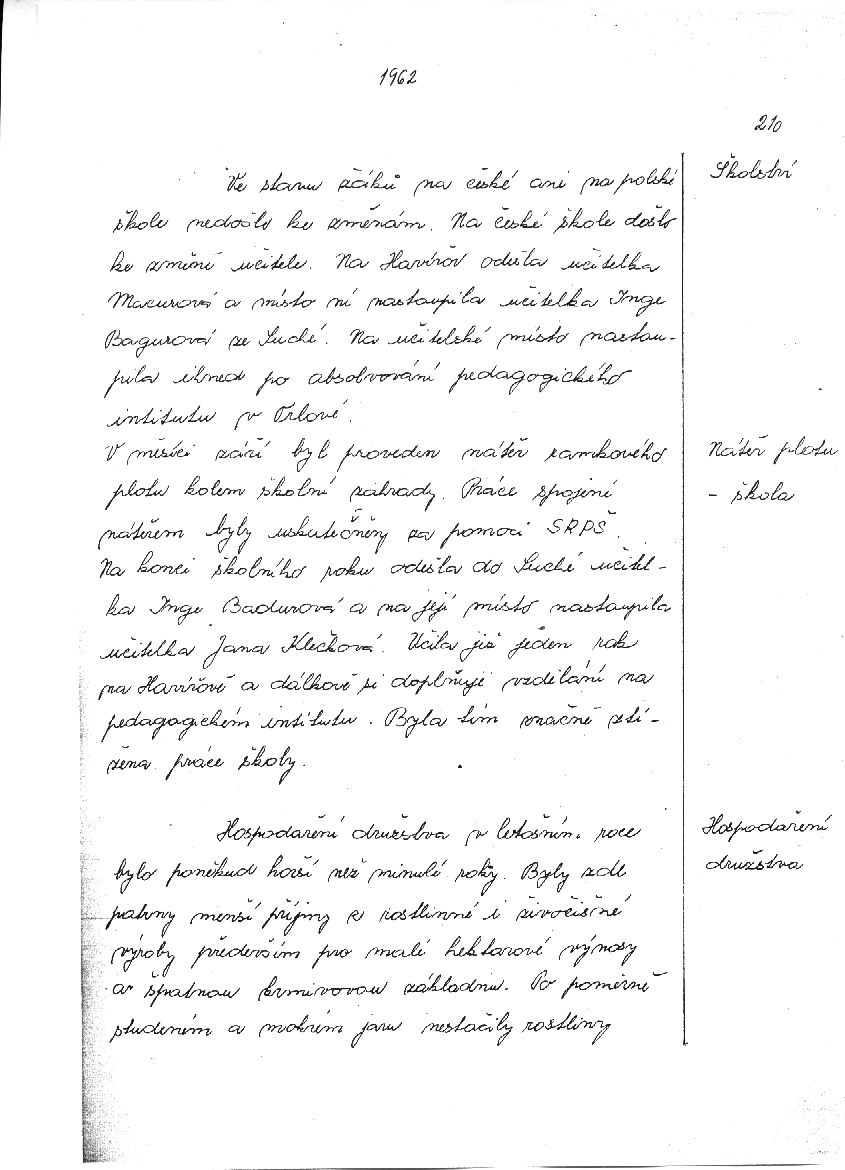 1962
210
Ve stavu žáků na české ani na polské
Školství
škole nedošlo ke změnám. Na české škole došlo
ke změně učitele. Na Havířov odešla učitelka
Macurová a místo ní nastoupila učitelka Inge
Bagurová ze Suché. Na učitelské místo nastou-
pila ihned po absolvování pedagogického
institutu v Orlové.
V měsíci září byl proveden nátěr ramkového
Nátěr plotu
plotu kolem školní zahrady. Práce spojené
- škola
nátěrem byly uskutečněny za pomoci SRPŠ.
Na konci školního roku odešla do Suché učitel-
ka Inge Badurová a na její místo nastoupila
učitelka Jana Klečková. Učila již jeden rok
na Havířově a dálkově si doplňuje vzdělání na
pedagogickém institutu. Byla tím značně ztí-
žena práce školy.
Hospodaření družstva v letošním roce
Hospodaření
bylo poněkud horší než minulé roky. Byly zde
družstva
patrny menší příjmy z rostlinné i živočišné
výroby především pro malé hektarové výnosy
a špatnou krmivovou základnu. Po poměrně
studeném a mokrém jaru nestačily rostliny